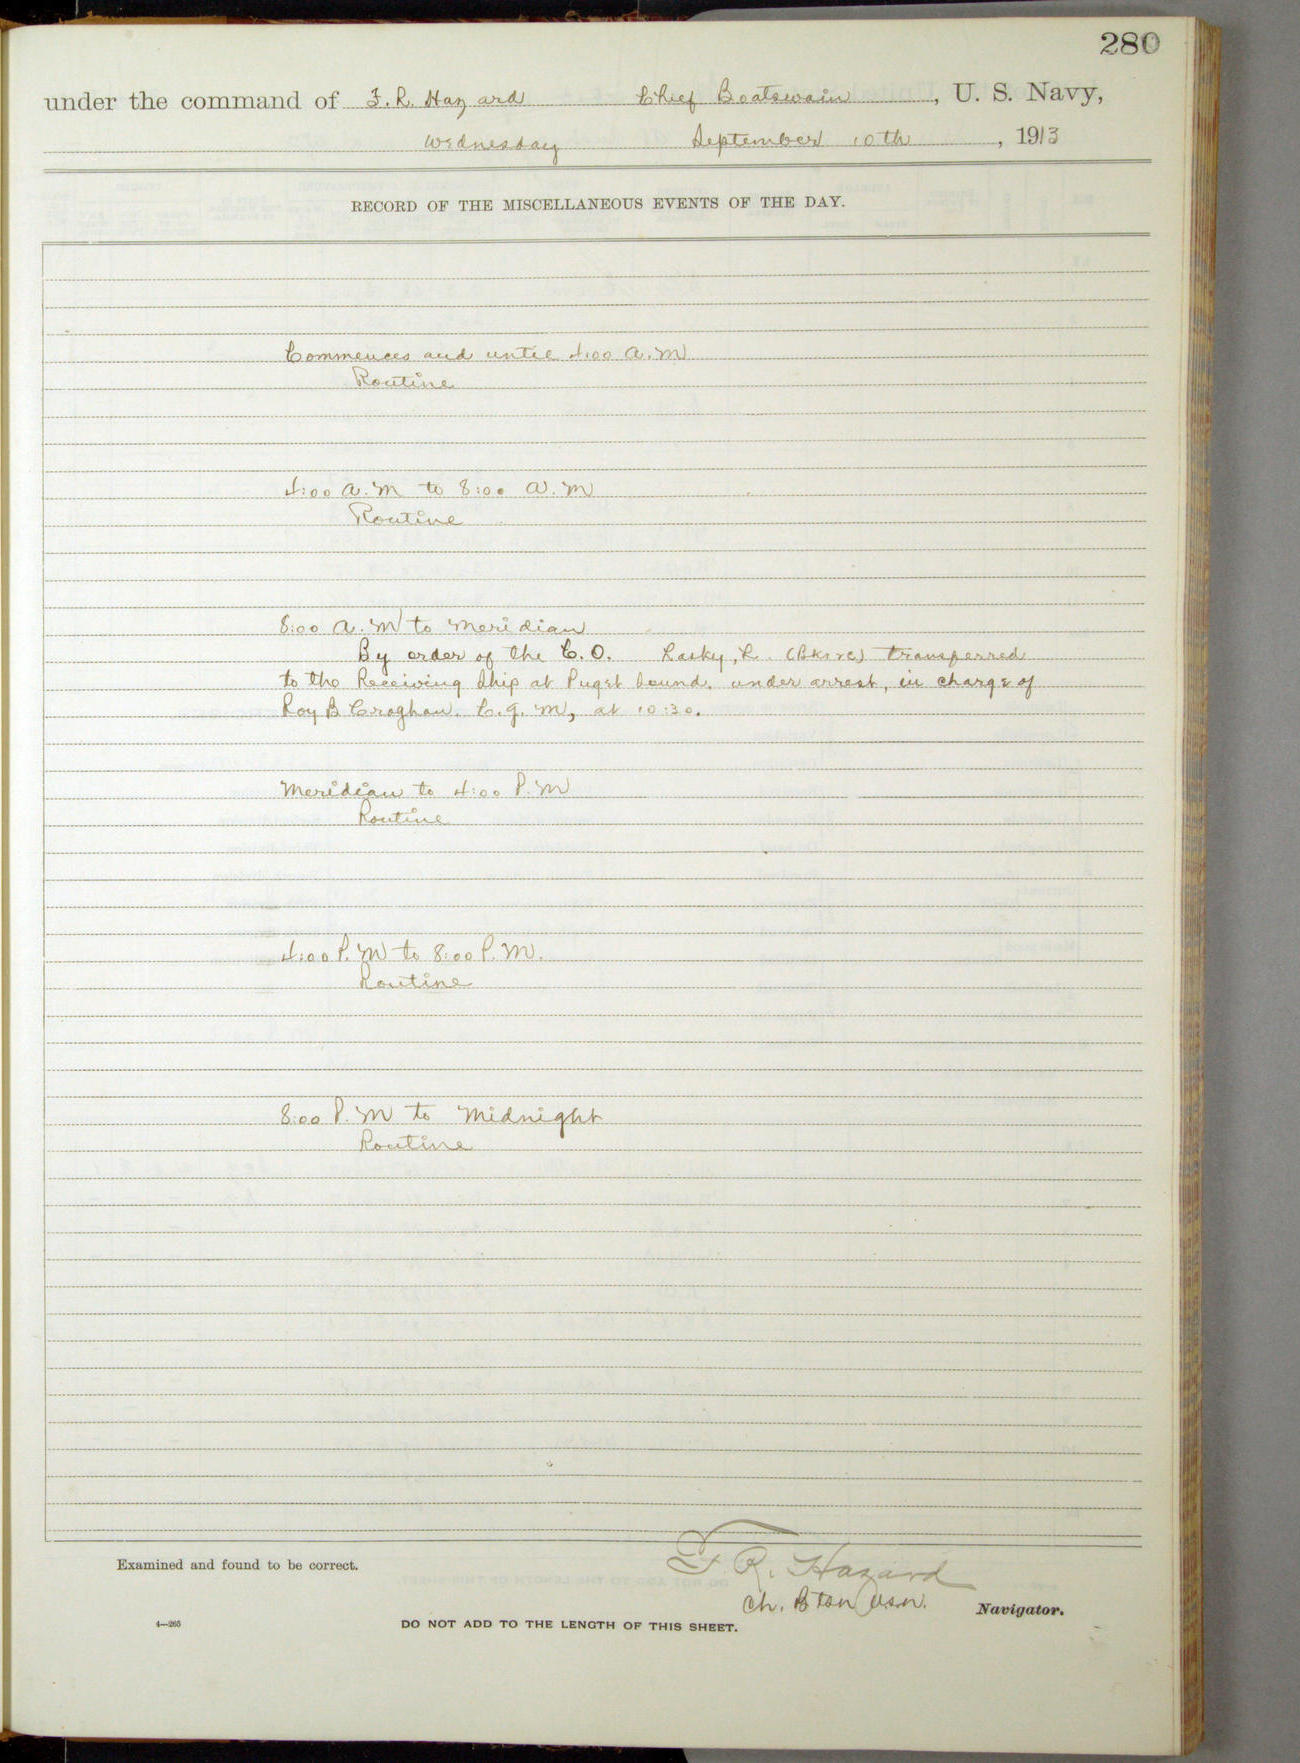 280
under the command of F. R. Hazard Chief Boatswain, U. S. Navy,
Wednesday September 10th, 1913
RECORD OF THE MISCELLANEOUS EVENTS OF THE DAY.
Commences and until 4:00 A.M
Routine
4:00 A.M to 8:00 A.M
Routine
8:00 A.M to Meridian
By order of the C.O. Lasky, L. transferred
to the Receiving Ship at Puget Sound. under arrest, in charge of
Roy B Croghan. C.G.M, at 10:30.
Meridian to 4:00 P.M
Routine
4:00 P.M to 8:00 P.M.
Routine
8:00 P.M to Midnight
Routine
Examined and found to be correct.
F. R. Hazard
Ch. Btsn USN.
Navigator.
4—265
DO NOT ADD TO THE LENGTH OF THIS SHEET.